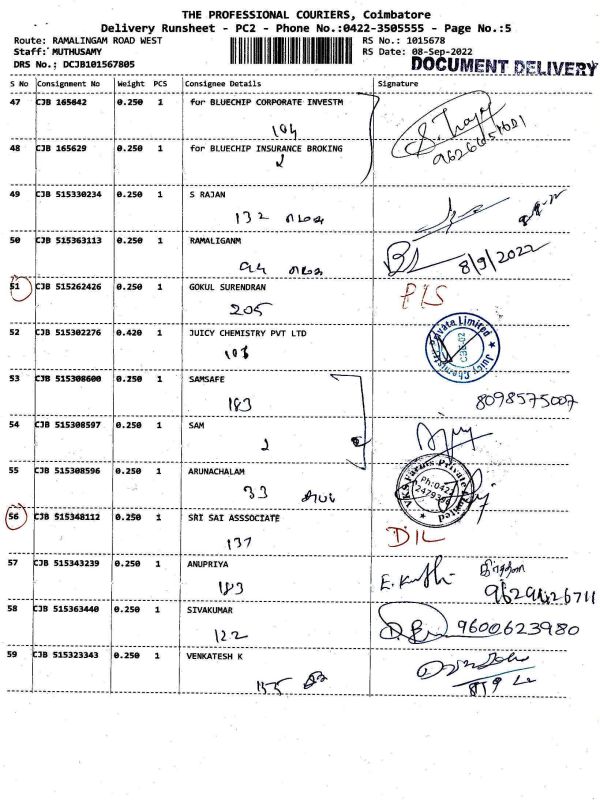 THE PROFESSIONAL COURIERS, Coimbatore
Delivery Runsheet - PC2 - Phone No.:0422-3505555 - Page No.:5
Route: RAMALINGAM ROAD WEST RS No.: 1015678
Staff: MUTHUSAMY RS Date: 08-Sep-2022
DRS No.; DCJB101567805 DOCUMENT DELIVERY
S No Consignment No Weight PCS Consignee Details Signature
47 CJB 165642 0.250 1 for BLUECHIP CORPORATE INVESTM
104
48 CJB 165629 0.250 1 for BLUECHIP INSURANCE BROKING
2
49 CJB 515330234 0.250 1 S RAJAN
132
50 CJB 515363113 0.250 1 RAMALIGANM
8/9/2022
51 CJB 515262426 0.250 1 GOKUL SURENDRAN
205
52 CJB 515302276 0.420 1 JUICY CHEMISTRY PVT LTD
Juicy Chemistry Private Limited
53 CJB 515308600 0.250 1 SAMSAFE
183 8098575007
54 CJB 515308597 0.250 1 SAM
2
55 CJB 515308596 0.250 1 ARUNACHALAM
33
56 CJB 515348112 0.250 1 SRI SAI ASSSOCIATE
137 DIL
57 CJB 515343239 0.250 1 ANUPRIYA
183
58 CJB 515363440 0.250 1 SIVAKUMAR
122 9600623980
59 CJB 515323343 0.250 1 VENKATESH K